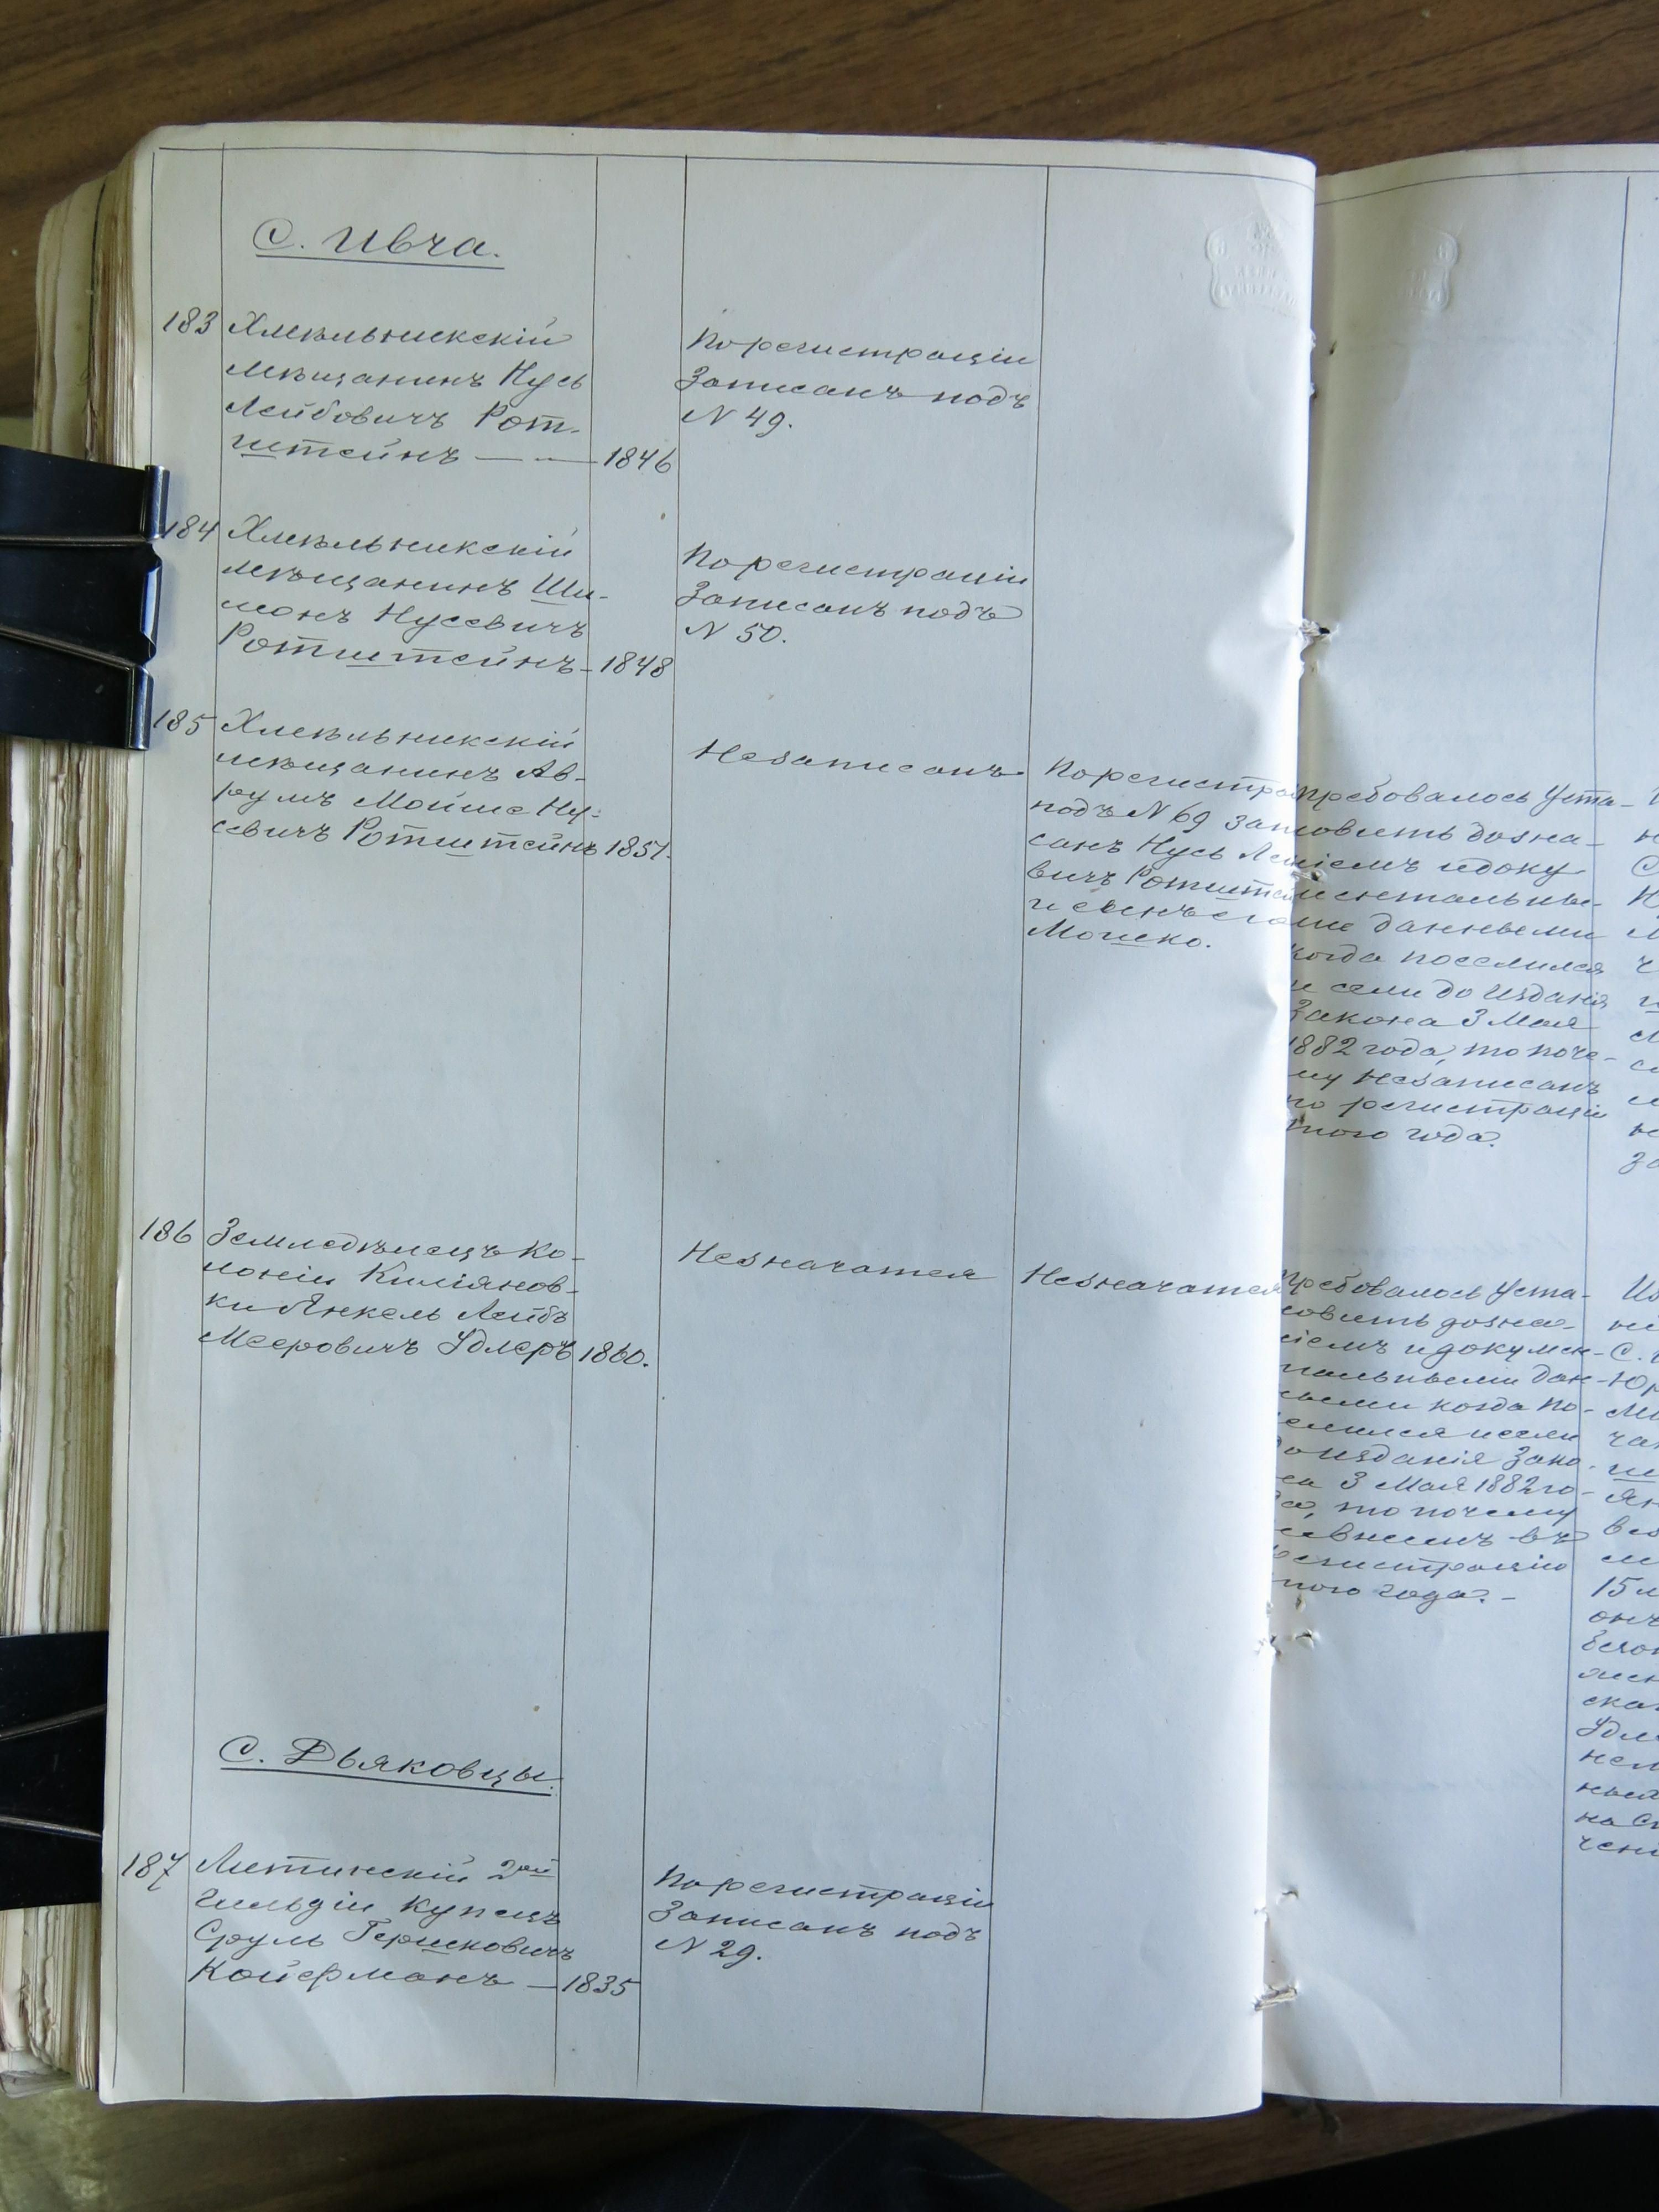 С. Ивча.
183 Хмѣльникскій
мѣщанинъ Нусь
Лейбовичъ Рот-
штейнъ — 1846
По регистраціи
записанъ подъ
N 49.
184 Хмѣльникскій
мѣщанинъ Ши-
монъ Нусевичъ
Ротштейнъ - 1848
По регистраціи
записанъ подъ
N 50.
185 Хмѣльникскій
мѣщанинъ Ав-
румъ Мойше Ну-
севичъ Ротштейнъ 1851.
Незаписанъ
По регистра
подъ N 69 запи
санъ Нусь Ле
вичъ Ротштей
и сынъ его
Мошко.
Требовалось уста-
новить дозна-
ніемъ и доку-
ментальны-
ми данными
когда поселился
и если до изданія
Закона 3 Мая
1882 года, то поче-
му незаписанъ
по регистраціи
того года.
186 Земледѣлецъ ко-
лоніи Килiянов-
ки Янкель Лейбъ
Мееровичъ Удлеръ 1860.
Незначится
Незначится
Требовалось уста-
новить дозна-
ніемъ и докумен-
тальными дан-
ными когда по-
селился и если
до изданія Зако-
на 3 Мая 1882 го-
да, то почему
невнесенъ въ
регистрацію
того года. -
С. Дьяковцы.
187 Литинскій 2ой
гильдіи купецъ
Сруль Гершковичъ
Койфманъ — 1835
По регистраціи
записанъ подъ
N 29.